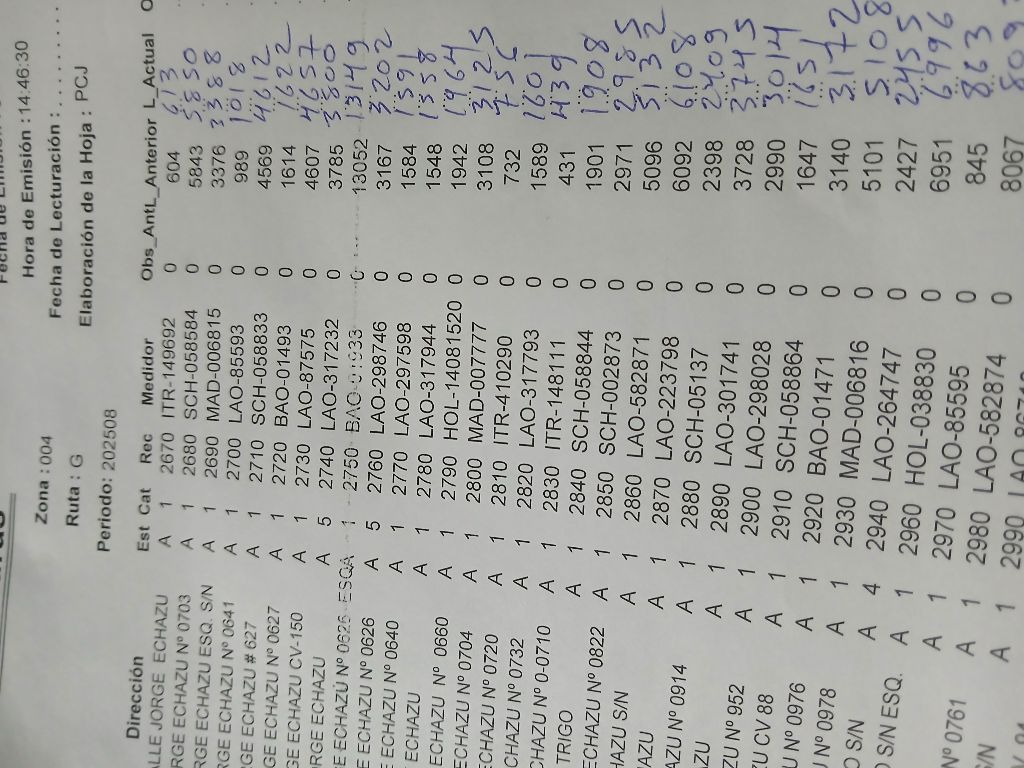 Hora de Emisión : 14:46:30
Zona : 004 Fecha de Lecturación : . . . . . . . .
Ruta : G Elaboración de la Hoja : PCJ
Periodo: 202508
Dirección Est Cat Rec Medidor Obs_Ant L_Anterior L_Actual O
ALLE JORGE ECHAZU A 1 2670 ITR-149692 0 604 613
RGE ECHAZU Nº 0703 A 1 2680 SCH-058584 0 5843 5850
RGE ECHAZU ESQ. S/N A 1 2690 MAD-006815 0 3376 3388
RGE ECHAZU Nº 0641 A 1 2700 LAO-85593 0 989 1018
RGE ECHAZU # 627 A 1 2710 SCH-058833 0 4569 4612
GE ECHAZU Nº 0627 A 1 2720 BAO-01493 0 1614 1622
GE ECHAZU CV-150 A 1 2730 LAO-87575 0 4607 4657
ORGE ECHAZU A 5 2740 LAO-317232 0 3785 3800
E ECHAZU Nº 0626 ESQA 1 2750 BAO-01933 0 13052 13149
E ECHAZU Nº 0626 A 5 2760 LAO-298746 0 3167 3202
E ECHAZU Nº 0640 A 1 2770 LAO-297598 0 1584 1591
ECHAZU A 1 2780 LAO-317944 0 1548 1558
ECHAZU Nº 0660 A 1 2790 HOL-14081520 0 1942 1964
ECHAZU Nº 0704 A 1 2800 MAD-007777 0 3108 3125
ECHAZU Nº 0720 A 1 2810 ITR-410290 0 732 756
CHAZU Nº 0732 A 1 2820 LAO-317793 0 1589 1601
CHAZU Nº 0-0710 A 1 2830 ITR-148111 0 431 439
TRIGO A 1 2840 SCH-058844 0 1901 1908
ECHAZU Nº 0822 A 1 2850 SCH-002873 0 2971 2985
HAZU S/N A 1 2860 LAO-582871 0 5096 5132
AZU A 1 2870 LAO-223798 0 6092 6108
AZU Nº 0914 A 1 2880 SCH-05137 0 2398 2409
ZU A 1 2890 LAO-301741 0 3728 3745
ZU Nº 952 A 1 2900 LAO-298028 0 2990 3014
ZU CV 88 A 1 2910 SCH-058864 0 1647 1651
U Nº 0976 A 1 2920 BAO-01471 0 3140 3172
Nº 0978 A 1 2930 MAD-006816 0 5101 5108
O S/N A 4 2940 LAO-264747 0 2427 2455
O S/N ESQ. A 1 2960 HOL-038830 0 6951 6996
A 1 2970 LAO-85595 0 845 863
Nº 0761 A 1 2980 LAO-582874 0 8067
S/N A 1 2990